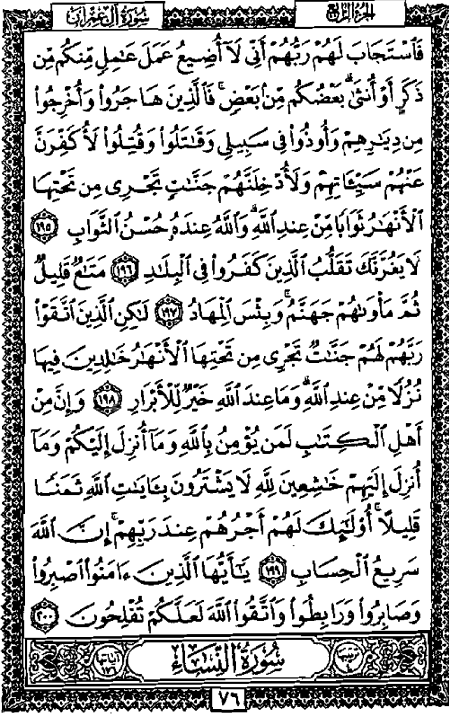 سُورَةُ آلِ عِمْرَان
الجُزْءُ الرَّابِعُ
فَٱسْتَجَابَ لَهُمْ رَبُّهُمْ أَنِّي لَآ أُضِيعُ عَمَلَ عَٰمِلٍ مِّنكُم مِّن
ذَكَرٍ أَوْ أُنثَىٰۖ بَعْضُكُم مِّنۢ بَعْضٍۖ فَٱلَّذِينَ هَاجَرُوا۟ وَأُخْرِجُوا۟
مِن دِيَٰرِهِمْ وَأُوذُوا۟ فِي سَبِيلِي وَقَٰتَلُوا۟ وَقُتِلُوا۟ لَأُكَفِّرَنَّ
عَنْهُمْ سَيِّـَٔاتِهِمْ وَلَأُدْخِلَنَّهُمْ جَنَّٰتٍ تَجْرِي مِن تَحْتِهَا
ٱلْأَنْهَٰرُ ثَوَابًا مِّنْ عِندِ ٱللَّهِۗ وَٱللَّهُ عِندَهُۥ حُسْنُ ٱلثَّوَابِ ١٩٥
لَا يَغُرَّنَّكَ تَقَلُّبُ ٱلَّذِينَ كَفَرُوا۟ فِي ٱلْبِلَٰدِ ١٩٦ مَتَٰعٌ قَلِيلٌ
ثُمَّ مَأْوَىٰهُمْ جَهَنَّمُۚ وَبِئْسَ ٱلْمِهَادُ ١٩٧ لَٰكِنِ ٱلَّذِينَ ٱتَّقَوْا۟
رَبَّهُمْ لَهُمْ جَنَّٰتٌ تَجْرِي مِن تَحْتِهَا ٱلْأَنْهَٰرُ خَٰلِدِينَ فِيهَا
نُزُلًا مِّنْ عِندِ ٱللَّهِۗ وَمَا عِندَ ٱللَّهِ خَيْرٌ لِّلْأَبْرَارِ ١٩٨ وَإِنَّ مِنْ
أَهْلِ ٱلْكِتَٰبِ لَمَن يُؤْمِنُ بِٱللَّهِ وَمَآ أُنزِلَ إِلَيْكُمْ وَمَآ
أُنزِلَ إِلَيْهِمْ خَٰشِعِينَ لِلَّهِ لَا يَشْتَرُونَ بِـَٔايَٰتِ ٱللَّهِ ثَمَنًا
قَلِيلًاۗ أُو۟لَٰٓئِكَ لَهُمْ أَجْرُهُمْ عِندَ رَبِّهِمْۗ إِنَّ ٱللَّهَ
سَرِيعُ ٱلْحِسَابِ ١٩٩ يَٰٓأَيُّهَا ٱلَّذِينَ ءَامَنُوا۟ ٱصْبِرُوا۟
وَصَابِرُوا۟ وَرَابِطُوا۟ وَٱتَّقُوا۟ ٱللَّهَ لَعَلَّكُمْ تُفْلِحُونَ ٢٠٠
سُورَةُ النِّسَاءِ
٧٦